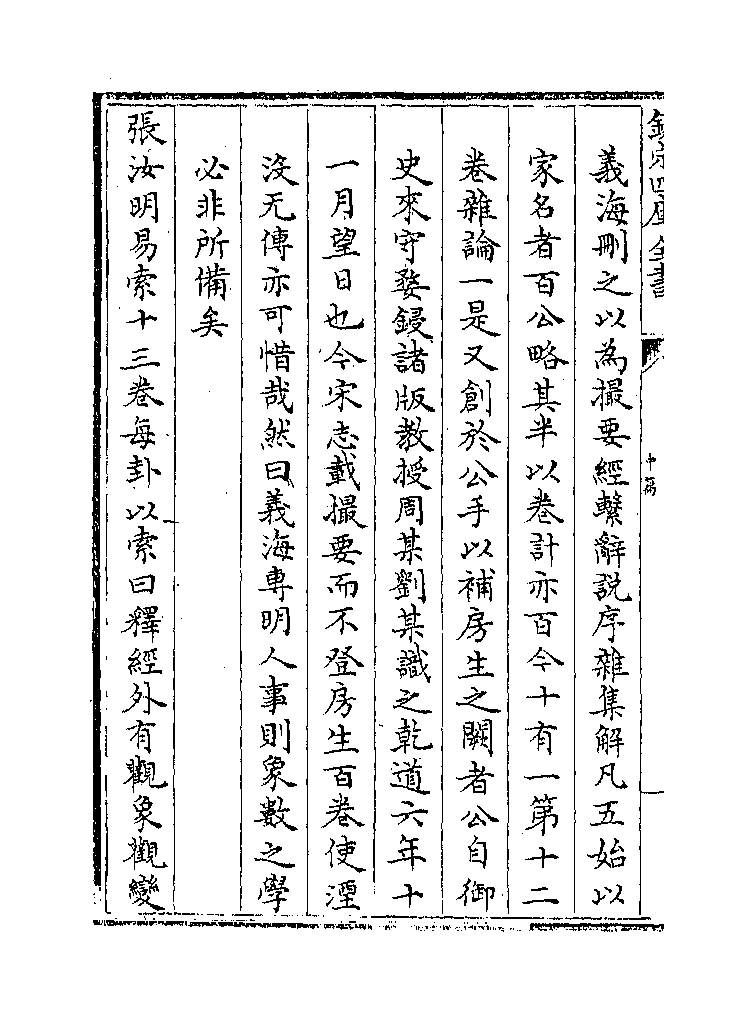 欽定四庫全書
中篇
義海刪之以為撮要經繫辭說序雜集解凡五始以
家名者百公略其半以卷計亦百今十有一第十二
卷雜論一是又創於公手以補房生之闕者公自御
史來守婺鋟諸版教授周某劉某識之乾道六年十
一月望日也今宋志載撮要而不登房生百卷使湮
沒无傳亦可惜哉然曰義海專明人事則象數之學
必非所備矣
張汝明易索十三卷每卦以索曰釋經外有觀象觀變